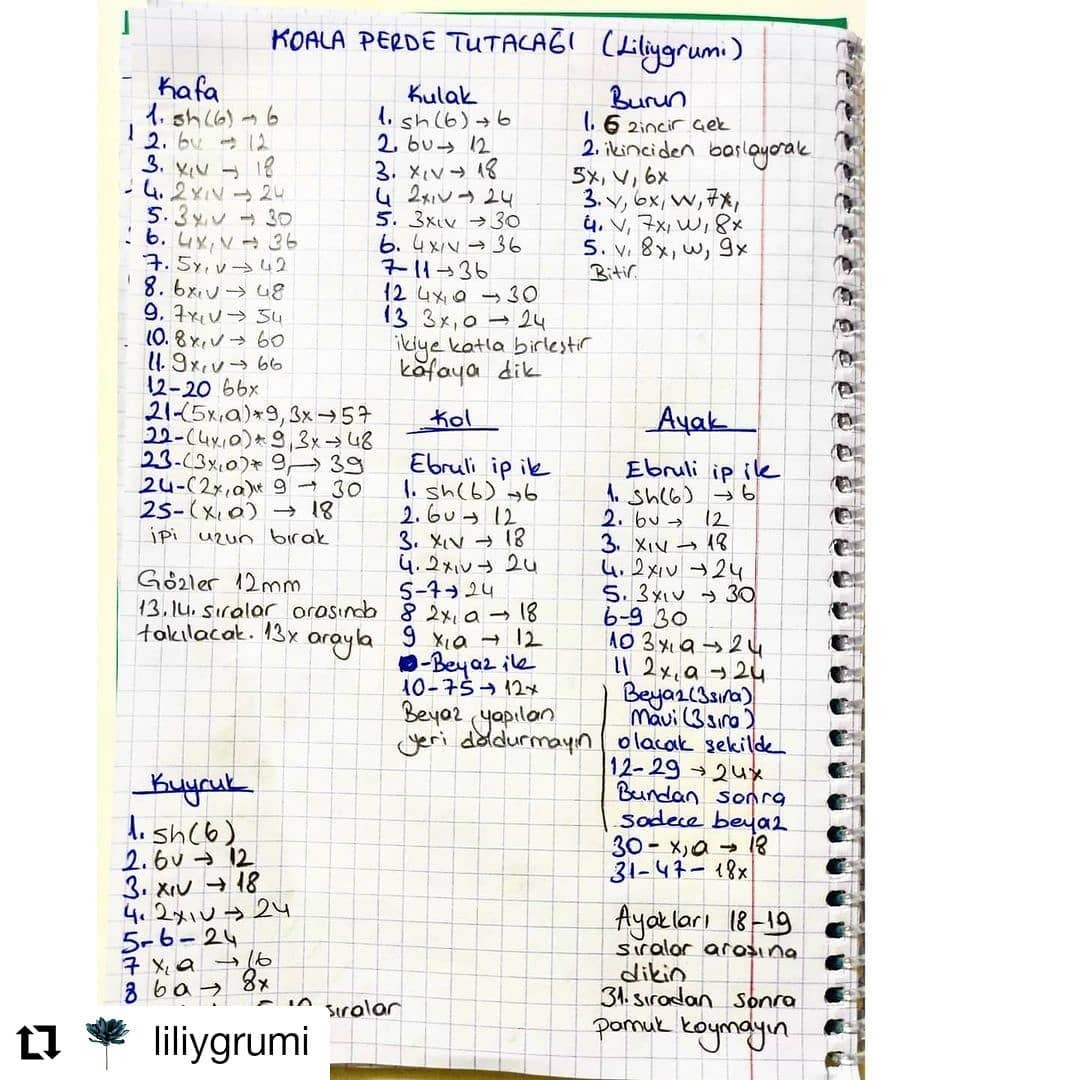 KOALA PERDE TUTACAĞI (Liliygrumi)
Kafa
1. sh(6) → 6
2. 6v → 12
3. x,v → 18
4. 2x,v → 24
5. 3x,v → 30
6. 4x,v → 36
7. 5x,v → 42
8. 6x,v → 48
9. 7x,v → 54
10. 8x,v → 60
11. 9x,v → 66
12-20 66x
21-(5x,a)*9, 3x → 57
22-(4x,a)*9, 3x → 48
23-(3x,a)* 9, → 39
24-(2x,a)* 9 → 30
25-(x,a) → 18
ipi uzun bırak
Gözler 12mm
13.14. sıralar arasında
takılacak. 13x arayla
Kulak
1. sh(6) → 6
2. 6v → 12
3. x,v → 18
4 2x,v → 24
5. 3x,v → 30
6. 4x,v → 36
7-11 → 36
12 4x,a → 30
13 3x,a → 24
ikiye katla birleştir
kafaya dik
Burun
1. 6 zincir çek
2. ikinciden başlayarak
5x, v, 6x
3. v, 6x, w, 7x,
4. v, 7x, w, 8x
5. v, 8x, w, 9x
Bitir.
Kol
Ebruli ip ile
1. sh(6) → 6
2. 6v → 12
3. x,v → 18
4. 2x,v → 24
5-7 → 24
8 2x,a → 18
9 x,a → 12
-Beyaz ile
10-75 → 12x
Beyaz yapılan
yeri doldurmayın
Ayak
Ebruli ip ile
1. sh(6) → 6
2. 6v → 12
3. x,v → 18
4. 2x,v → 24
5. 3x,v → 30
6-9 30
10 3x,a → 24
11 2x,a → 24
Beyaz(3sıra)
Mavi(3sıra)
olacak şekilde
12-29 → 24x
Bundan sonra
sadece beyaz
30 - x,a → 18
31-47- 18x
Ayakları 18-19
sıralar arasına
dikin
31. sıradan sonra
pamuk koymayın
Kuyruk
1. sh(6)
2. 6v → 12
3. x,v → 18
4. 2x,v → 24
5-6-24
7 x,a → 16
8 6a → 8x
sıralar
liliygrumi